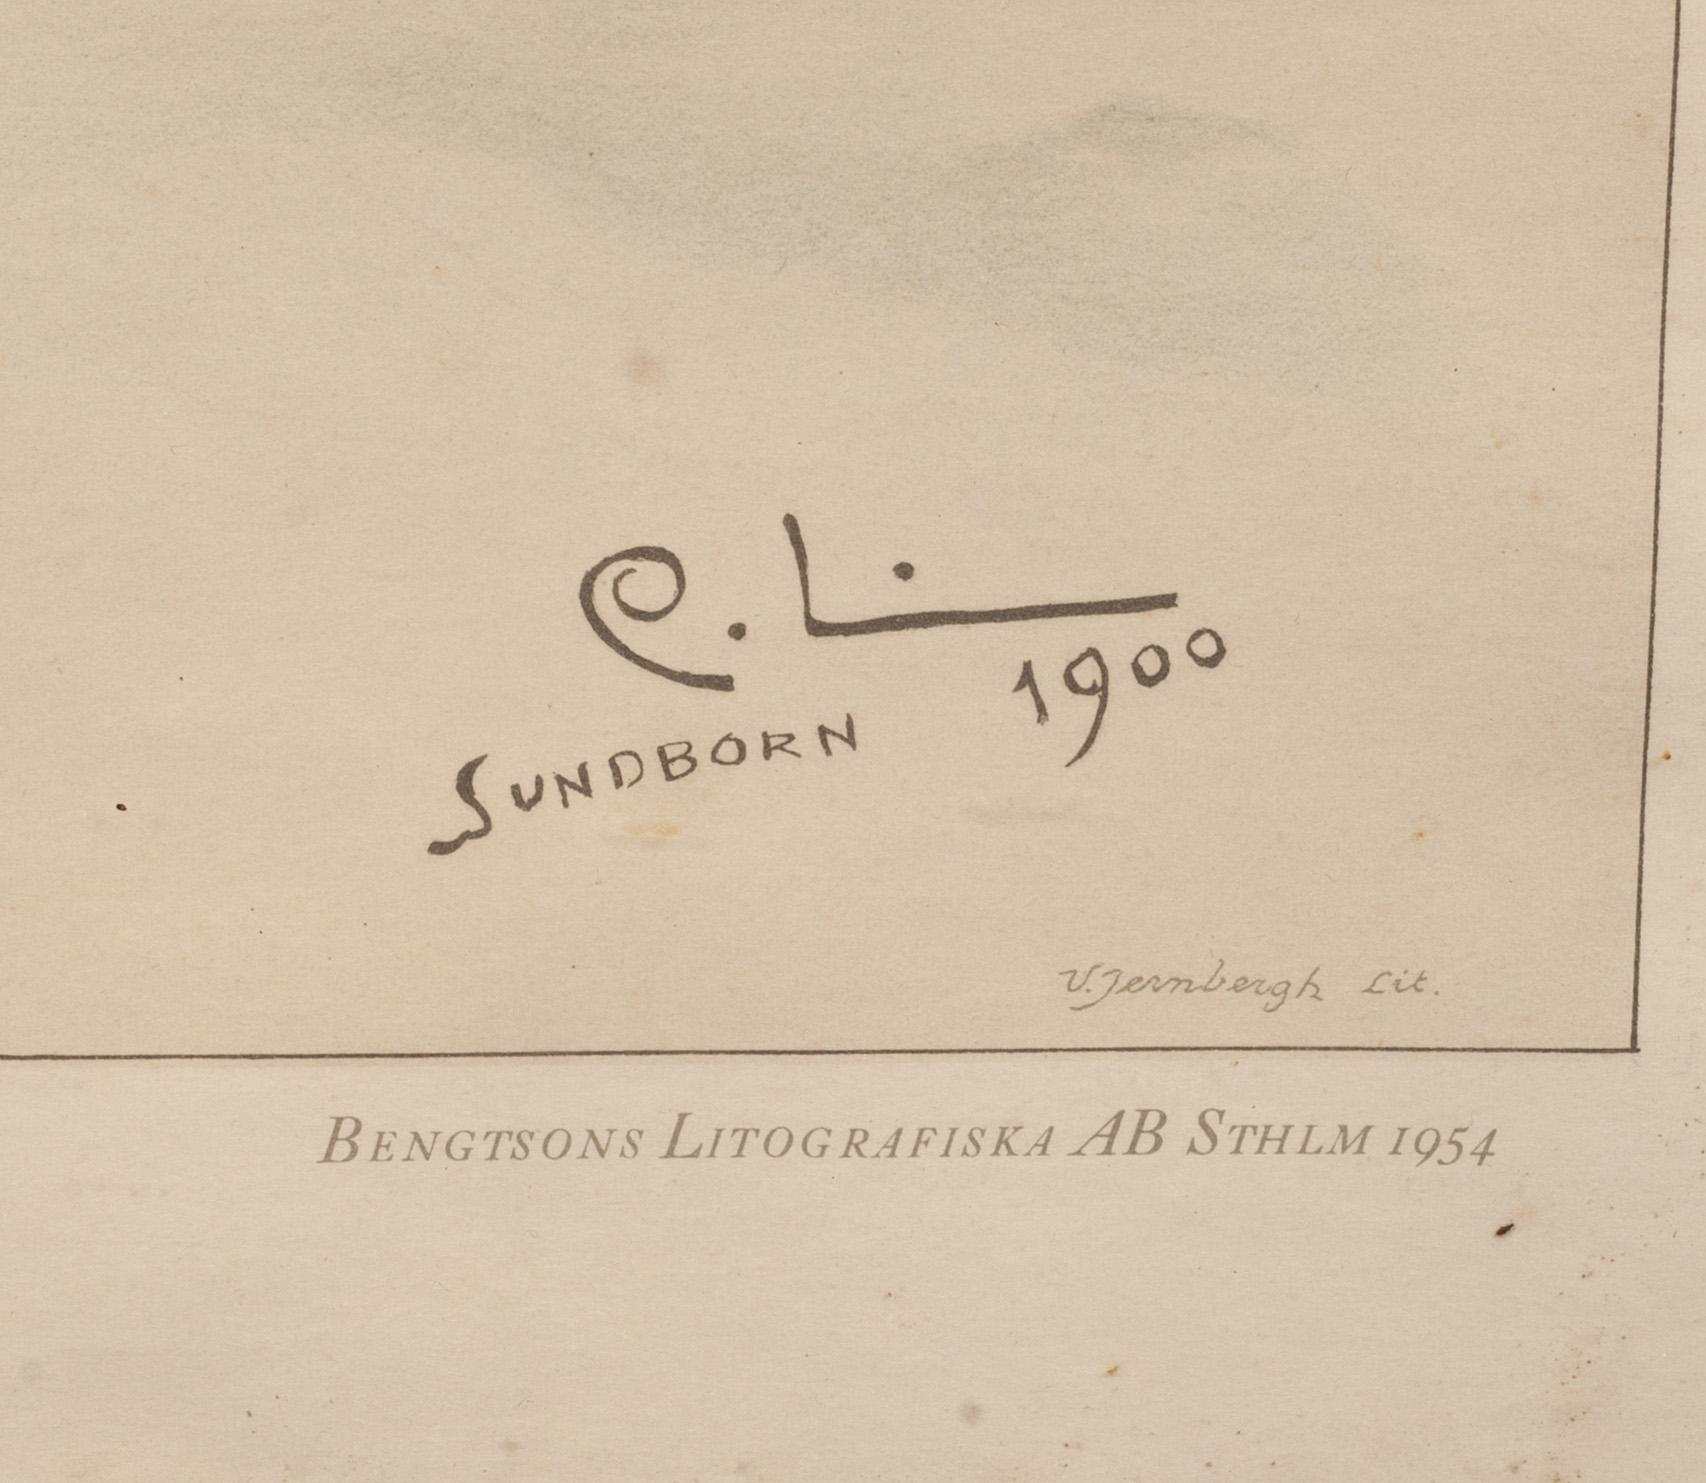 C. L.
1900
SUNDBORN
V. Jernbergh Lit.
BENGTSONS LITOGRAFISKA AB STHLM 1954